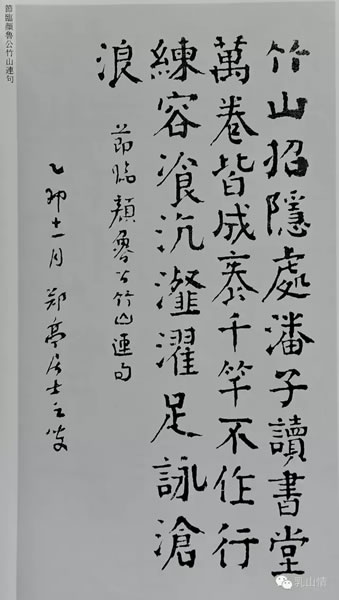 竹山招隱處潘子讀書堂
萬卷皆成袠千竿不作行
練容飡沆瀣濯足詠滄
浪
莭临顏魯公竹山連句
乙卯 月 郑 居士
節臨顏魯公竹山連句
乳山情